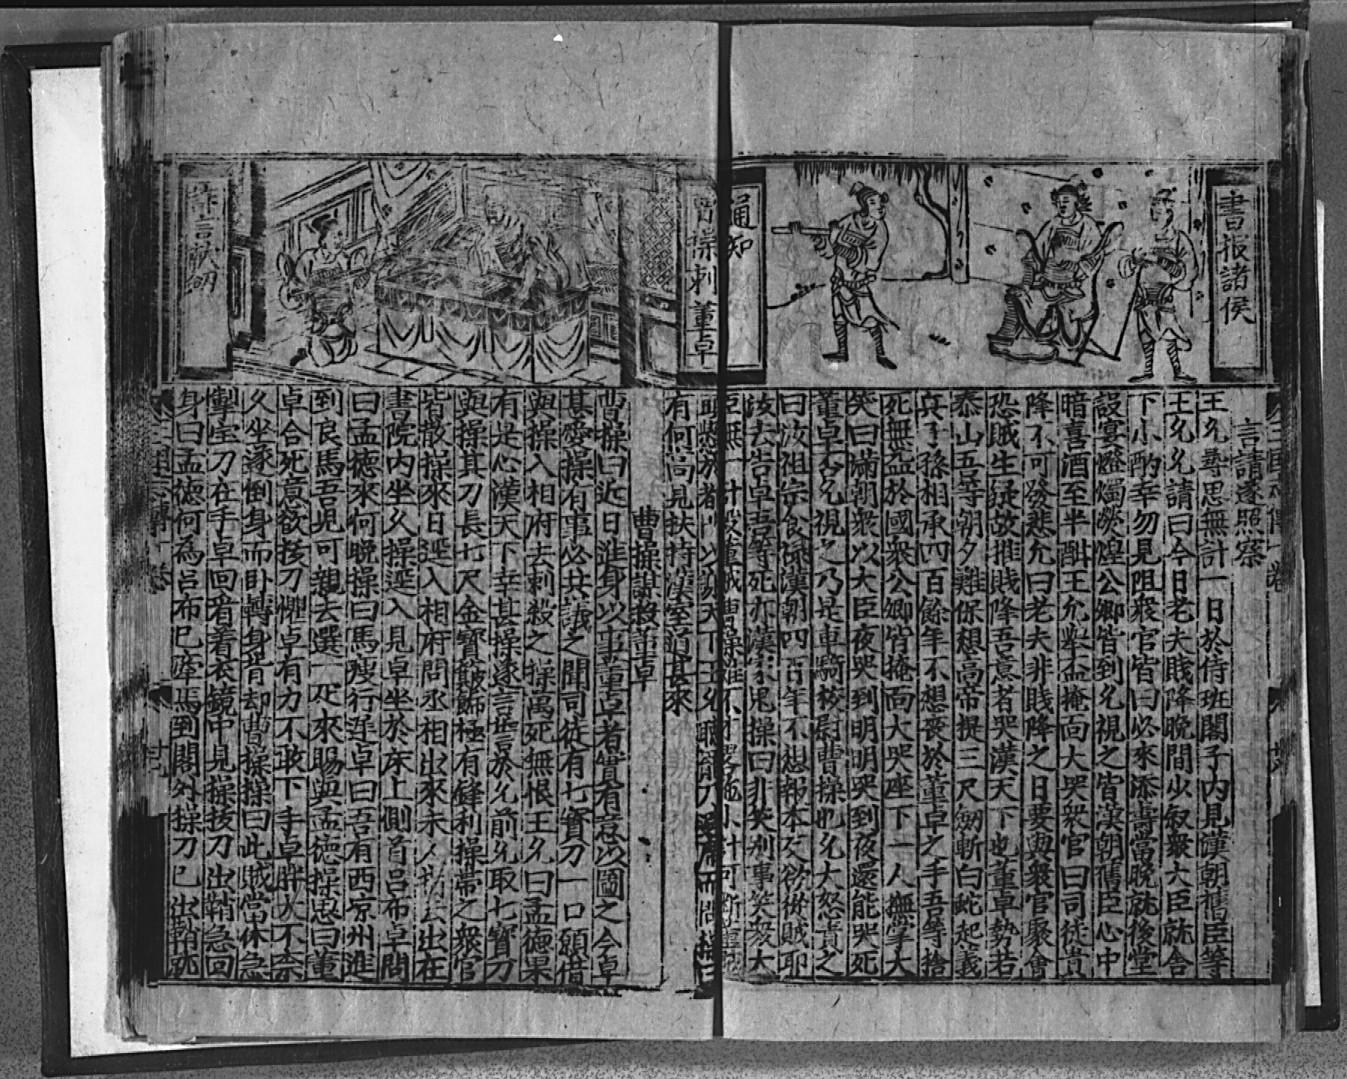 書報諸侯
通知
言請遂照察
王允尋思無計一日於侍班閣子內見漢朝舊臣等
王允允請曰今日老夫賤降晚間少叙衆大臣就舍
下小酌幸勿見阻衆官皆曰必來添壽當晚就後堂
設宴燈燭熒煌公卿皆到允視之皆漢朝舊臣心中
暗喜酒至半酣王允舉盃掩面大哭衆官曰司徒貴
降不可發悲允曰老夫非賤降之日要與衆官聚會
恐賊生疑故推賤降吾意者哭漢天下也董卓勢若
泰山五等朝夕難保想高帝提三尺劒斬白蛇起義
兵子孫相承四百餘年不想喪於董卓之手吾等捨
死無益於國衆公卿皆掩面大哭座下一人撫掌大
笑曰滿朝衆以大臣夜哭到明明哭到夜還能哭死
董卓否允視之乃是車騎校尉曹操也允大怒責之
曰汝祖宗食祿漢朝四百年不想報本交欲從賊耶
汝去告卓吾等死亦漢家鬼操曰非笑別事笑衆大
臣無一計殺董賊曹操雖不才畧施小計可斷董
頭懸於都以謝天下王允而問操曰
有何高見扶持漢室道甚來
曹操刺董卓
曹操謀殺董卓
曹操曰近日進身以事董卓者實有意以圖之今卓
甚愛操有事必共議之聞司徒有七寶刀一口願借
與操入相府去刺殺之操萬死無恨王允曰孟德果
有是心漢天下幸甚操遂言誓於允前允取七寶刀
與操其刀長七尺金寶嵌飾極有鋒利操帶之衆官
皆散操來日逕入相府問丞相出來未人出在
書院內坐久操逕入見卓坐於床上側首呂布卓問
曰孟德來何晚操曰馬瘦行遲卓曰吾有西凉州進
到良馬吾兒可親去選一疋來賜與孟德操思曰董
卓合死意欲拔刀懼卓有力不敢下手卓胖大不柰
久坐遂倒身而卧轉身背却曹操操曰此賊當休急
掣宝刀在手卓回看着衣鏡中見操拔刀出鞘急回
身曰孟德何為呂布已牽馬到閣外操刀已出鞘就
詐言獻劒